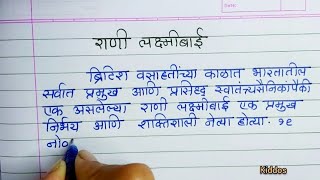 राणी लक्ष्मीबाई
ब्रिटिश वसाहतींच्या काळात भारतातील
सर्वात प्रमुख आणि प्रसिद्ध स्वातंत्र्यसैनिकांपैकी
एक असलेल्या राणी लक्ष्मीबाई एक प्रमुख
निर्भय आणि शक्तिशाली नेत्या होत्या. १९
नोव
Kiddos